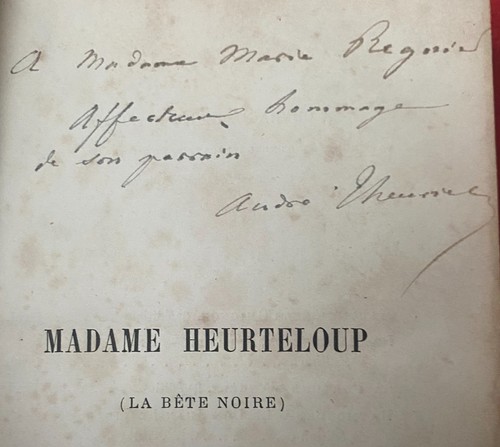 A Madame Marie Regnier
Affectueux hommage
de son parrain
André Theuriet
MADAME HEURTELOUP
(LA BÊTE NOIRE)